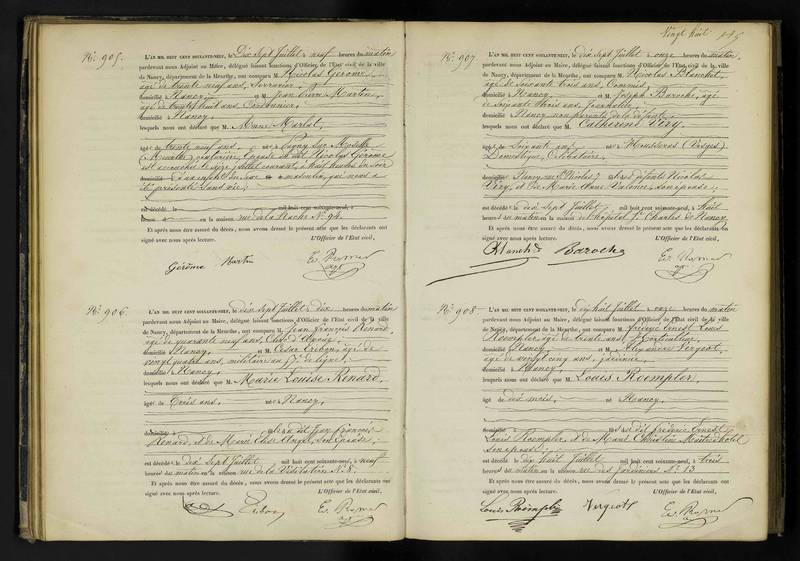 N° 905.
L'AN MIL HUIT CENT SOIXANTE-NEUF, le Dix Sept Juillet neuf heures du matin
pardevant nous Adjoint au Maire, délégué faisant fonctions d'Officier de l'Etat civil de la ville
de Nancy, département de la Meurthe, ont comparu M. Nicolas Gérome,
âgé de trente neuf ans, Serrurier,
domicilié Nancy et M. Jean Pierre Martin,
âgé de trente huit ans, Cordonnier,
domicilié Nancy,
lesquels nous ont déclaré que M. Marie Marlat,
âgée de trente ans, née à Pagny sur Moselle
(Meurthe), couturière, épouse dudit Nicolas Gérome
est accouchée le seize juillet courant, à huit heures du soir
d'un enfant du sexe masculin, qui nous a
été présenté sans vie;
est décédé le mil huit cent soixante-neuf, à
heure en la maison rue de la Hache N° 94.
Et après nous être assuré du décès, nous avons dressé le présent acte que les déclarants ont
signé avec nous après lecture. L'Officier de l'Etat civil,
Gérôme Martin
N° 906.
L'AN MIL HUIT CENT SOIXANTE-NEUF, le dix Sept Juillet dix heures du matin
pardevant nous Adjoint au Maire, délégué faisant fonctions d'Officier de l'Etat civil de la ville
de Nancy, département de la Meurthe, ont comparu M. Jean François Renard,
âgé de quarante neuf ans,
domicilié Nancy, et M. César Erébon, âgé de
vingt quatre ans, militaire au 57e de ligne,
domicilié Nancy,
lesquels nous ont déclaré que M. Marie Louise Renard,
âgée de trois ans, née à Nancy,
domiciliée fille du dit Jean François
Renard, et de Marie son épouse;
est décédée le dix Sept Juillet mil huit cent soixante-neuf, à neuf
heures du matin en la maison rue de la Visitation N° 8.
Et après nous être assuré du décès, nous avons dressé le présent acte que les déclarants ont
signé avec nous après lecture. L'Officier de l'Etat civil,
Vingt huit
N° 907
L'AN MIL HUIT CENT SOIXANTE-NEUF, le dix Sept Juillet onze heures du matin,
pardevant nous Adjoint au Maire, délégué faisant fonctions d'Officier de l'Etat civil de la ville
de Nancy, département de la Meurthe, ont comparu M. Nicolas Blanchet,
âgé de Soixante trois ans, Commis,
domicilié Nancy, et M. Joseph Baroche, âgé
de Soixante trois ans, journalier,
domicilié Nancy non parents de la défunte,
lesquels nous ont déclaré que M. Catherine Véry,
âgée de Soixante ans, née à (Vosges)
Domestique, Célibataire,
domiciliée Nancy rue St Nicolas 7 fille des défunts Nicolas
Véry, et de Marie Anne son épouse;
est décédée le dix Sept Juillet mil huit cent soixante-neuf, à huit
heures du matin en la maison de l'hôpital St Charles de Nancy.
Et après nous être assuré du décès, nous avons dressé le présent acte que les déclarants ont
signé avec nous après lecture. L'Officier de l'Etat civil,
Blanchet Baroche
N° 908.
L'AN MIL HUIT CENT SOIXANTE-NEUF, le dix huit Juillet onze heures du matin
pardevant nous Adjoint au Maire, délégué faisant fonctions d'Officier de l'Etat civil de la ville
de Nancy, département de la Meurthe, ont comparu M. Frédéric Ernest Louis
Roempler, âgé de trente ans, Horticulteur,
domicilié Nancy, et M. Vergeot,
âgé de vingt cinq ans, jardinier,
domicilié à Nancy,
lesquels nous ont déclaré que M. Louis Roempler,
âgé de dix mois, né à Nancy,
domicilié fils du dit Frédéric Ernest
Louis Roempler, et de Marie Christine
son épouse;
est décédé le dix huit Juillet mil huit cent soixante-neuf, à trois
heures du matin en la maison rue des Jardiniers N° 13
Et après nous être assuré du décès, nous avons dressé le présent acte que les déclarants ont
signé avec nous après lecture. L'Officier de l'Etat civil,
Louis Roempler Vergeot